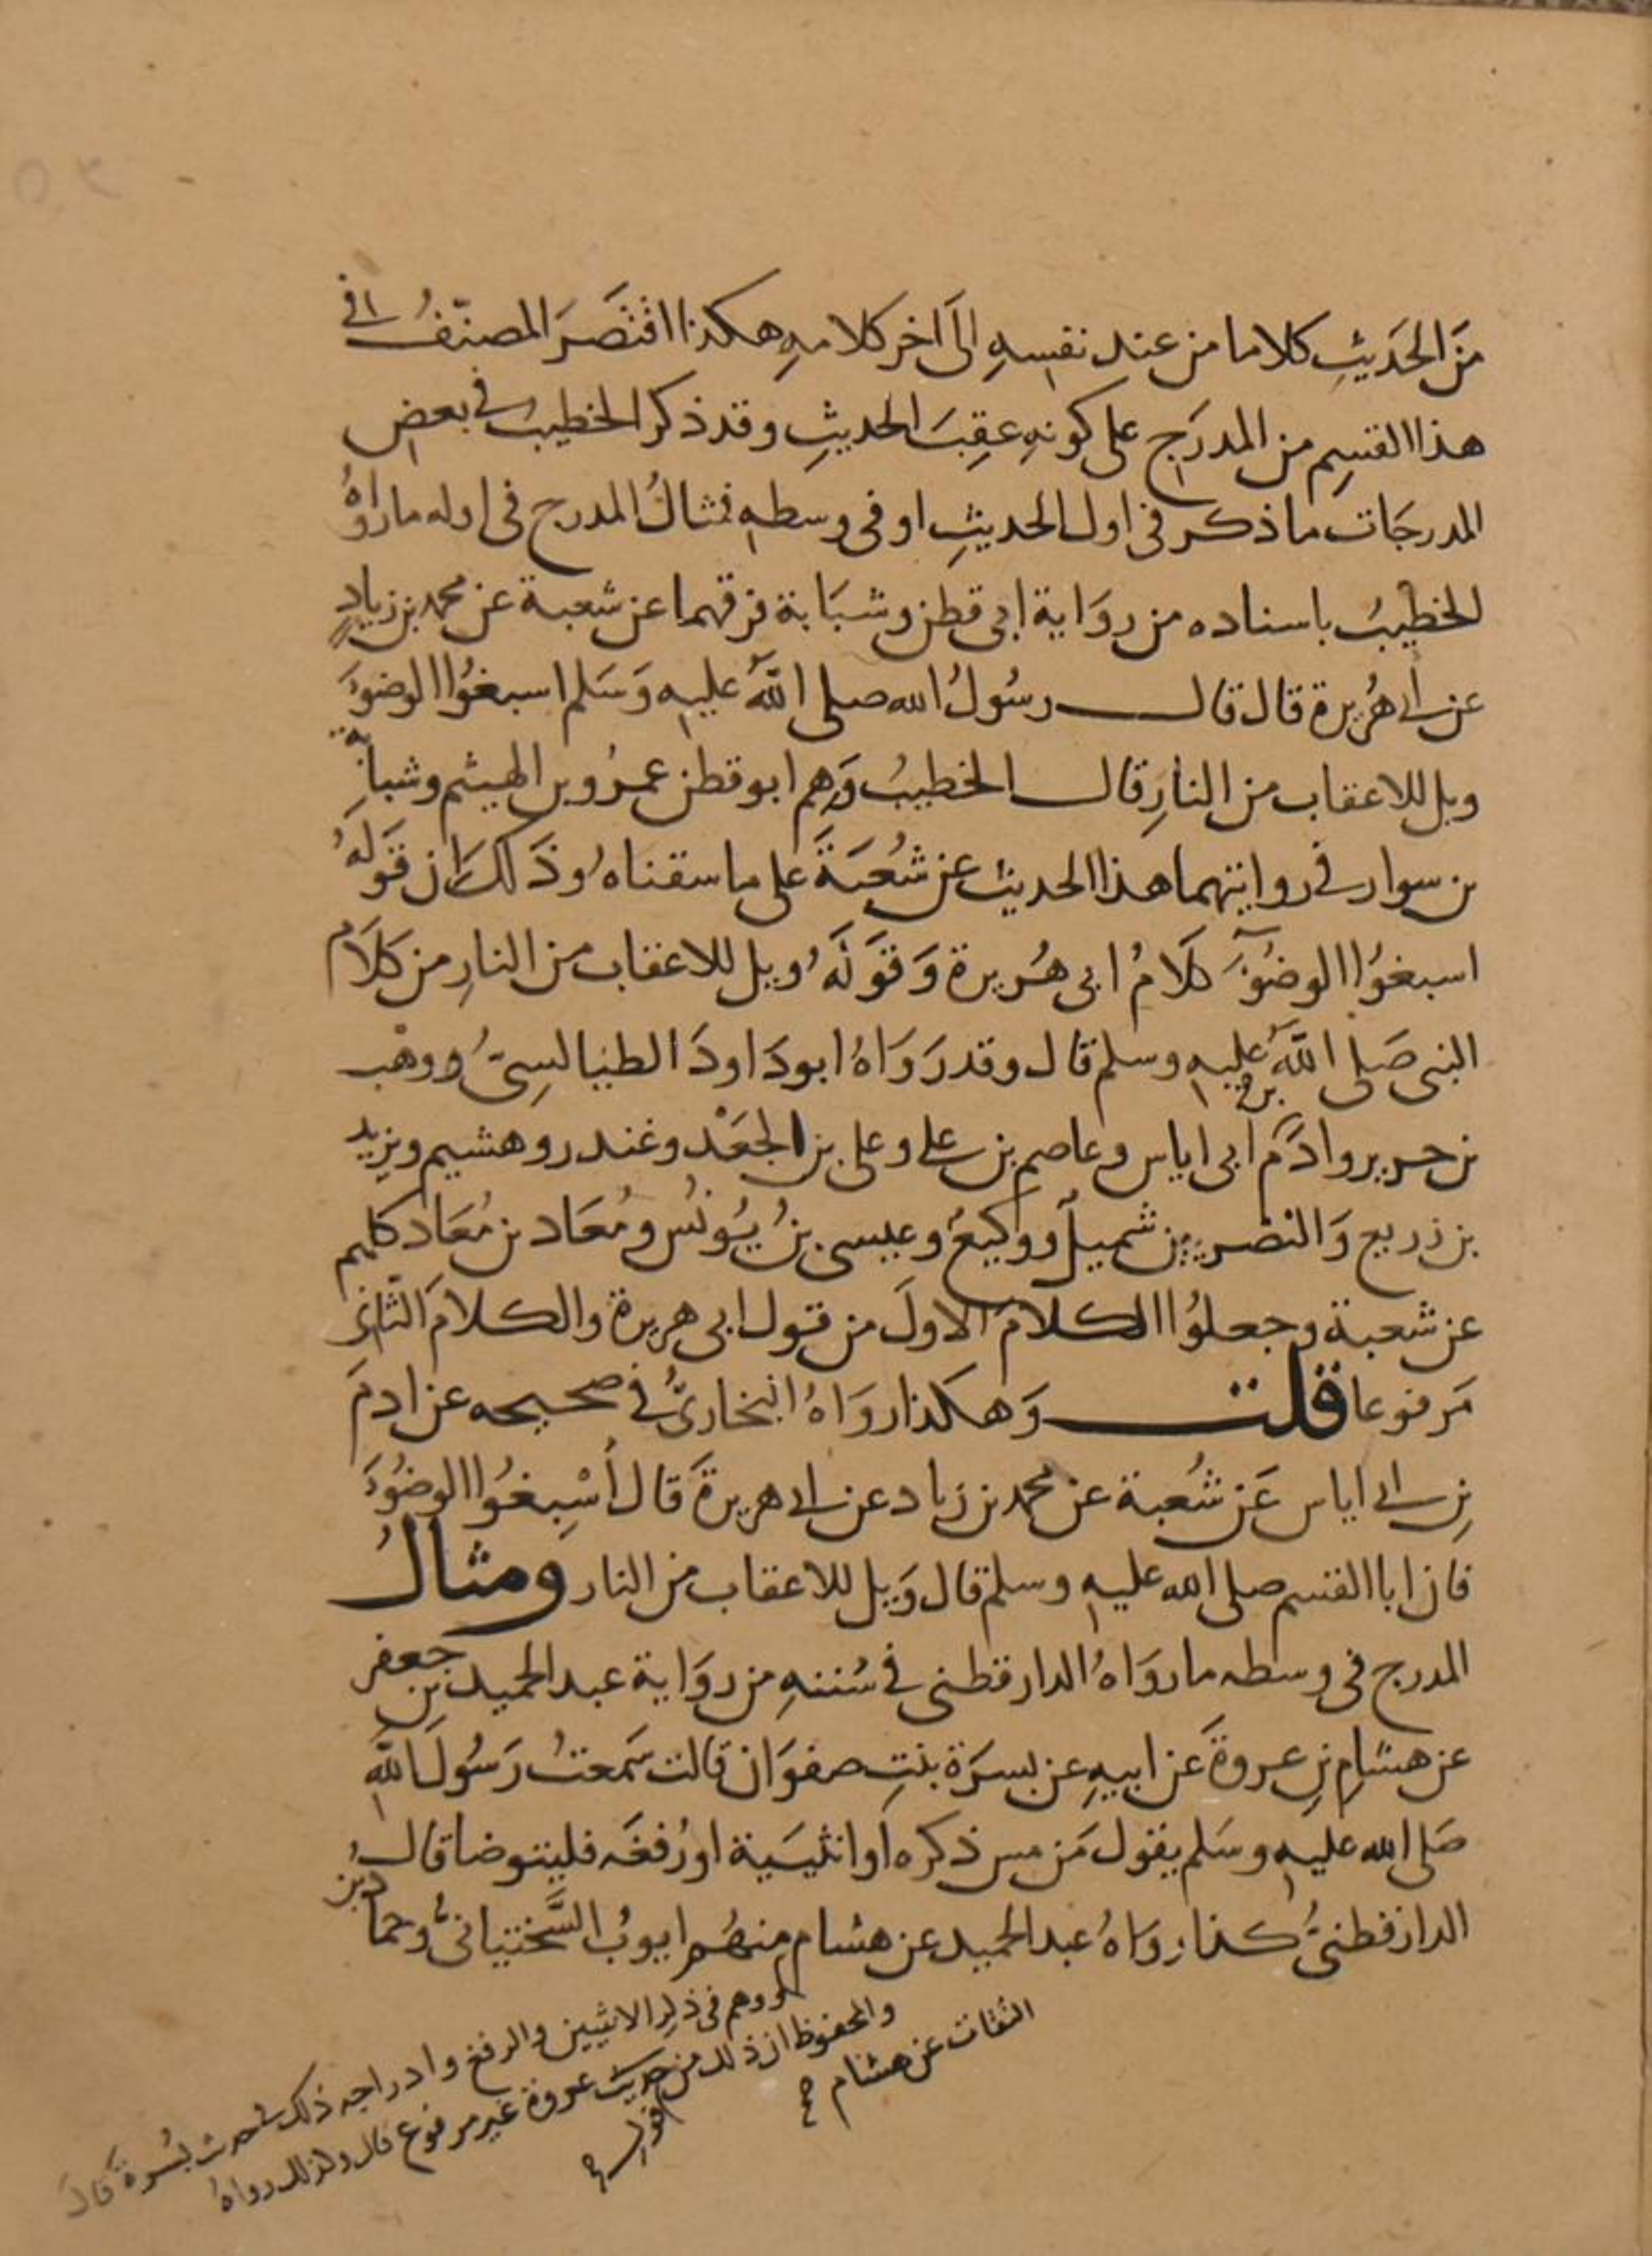 من الحَديثِ كلاما من عند نفسِهِ الى اخر كلامهِ هكذا اقتصَرَ المصنّفُ في
هذا القسم من المدرَج على كونهِ عقِبَ الحديثِ وقد ذكر الخطيب في بعض
المدرجَات ما ذكر في اول الحديثِ او في وسطهِ فمثالُ المدرج في اوله ما رواهُ
الخطيبُ باسناده من روَاية ابي قطن وشبَابة فرقهما عن شعبة عن محمد بن زيادٍ
عن ابي هُريرة قال قال رسُولُ الله صلى اللهُ عليه وَسَلم اسبغُوا الوضوءَ
ويل للاعقاب من النارِ قال الخطيبُ وَهِم ابو قطن عمرُو بن الهيثم وشبابة
بن سوار في روايتهما هذا الحديث عن شُعبَةَ على ما سقناهُ وذَلك ان قَولَهُ
اسبغوُا الوضُوءَ كلَامُ ابي هُريرة وَقَولَهُ ويل للاعقاب من النارِ من كلَام
النبي صَلى اللهُ عليه وسلم قال وقد رَوَاهُ ابو دَاودَ الطيالسِيُّ ووهْب
بن جرير وادَم بن ابي اياس وعاصم بن علي وعلي بن الجعَدْ وغندر وهشيم ويزيد
بن زريع وَالنضر بن شميل ووكيعُ وعيسى بنُ يُونُس ومُعَاد بن مُعَاد كلهم
عن شعبة وجعلوُا الكلامَ الاولَ من قول ابي هريرة والكلامَ الثاني
مَرفوعا قلت وَهكذا روَاهُ البخاريُّ في صحيحه عن ادمَ
بنِ ابي اياس عَن شُعبة عن محمد بن زياد عن ابي هريرةَ قال أسْبِغُوا الوضُوءَ
فان ابا القسم صلى الله عليه وسلم قال وَيل للاعقاب من النار ومثالُ
المدرج في وسطه ما روَاهُ الدارقطني في سُننهِ من روَاية عبد الحميد بن جعفر
عن هشامِ بنِ عروةَ عَن ابيهِ عن بسرَة بنتِ صفوَان قالت سَمعتُ رَسُولَ اللهِ
صَلى الله عليه وسَلم يقول مَن مس ذكره او انثيَية او رُفغَه فليتوضا قال
الدارقطنيُّ كذا روَاهُ عبد الحميد عن هشام منهُم ايوبُ السَّختيانيُّ وحماد بن
ووهم في ذكر الانثيين والرفغ وادراجه ذلك في حديث بُسرةَ قال
والمحفوظ ان ذلك من قول عروة غير مرفوع قال وكذلك رواهُ
الثقات عن هشام